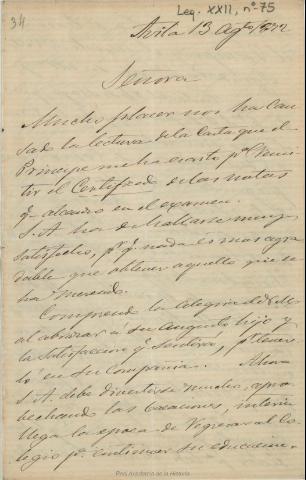 34
Leg. XXII, nº-75
Avila 13 Agto/872
Señora
Mucho placer nos ha cau
sado la lectura de la Carta que el
Principe me ha escrito pª remi
tir el Certificado de las notas
q. alcanzo en el examen.
S. A. ha de hallarse muy
satisfecho, pr q. nada es mas agra
dable que obtener aquello que se
ha merecido.
Comprendo la alegria de V. M.
al abrazar a su augusto hijo y
la satisfaccion q. sentira, pr tener
lo en su compañia.
S. A. debe divertirse mucho, apro
bechando las vacaciones, interin
llega la epoca de regresar al Co
legio pª continuar su educacion.
Real Academia de la Historia